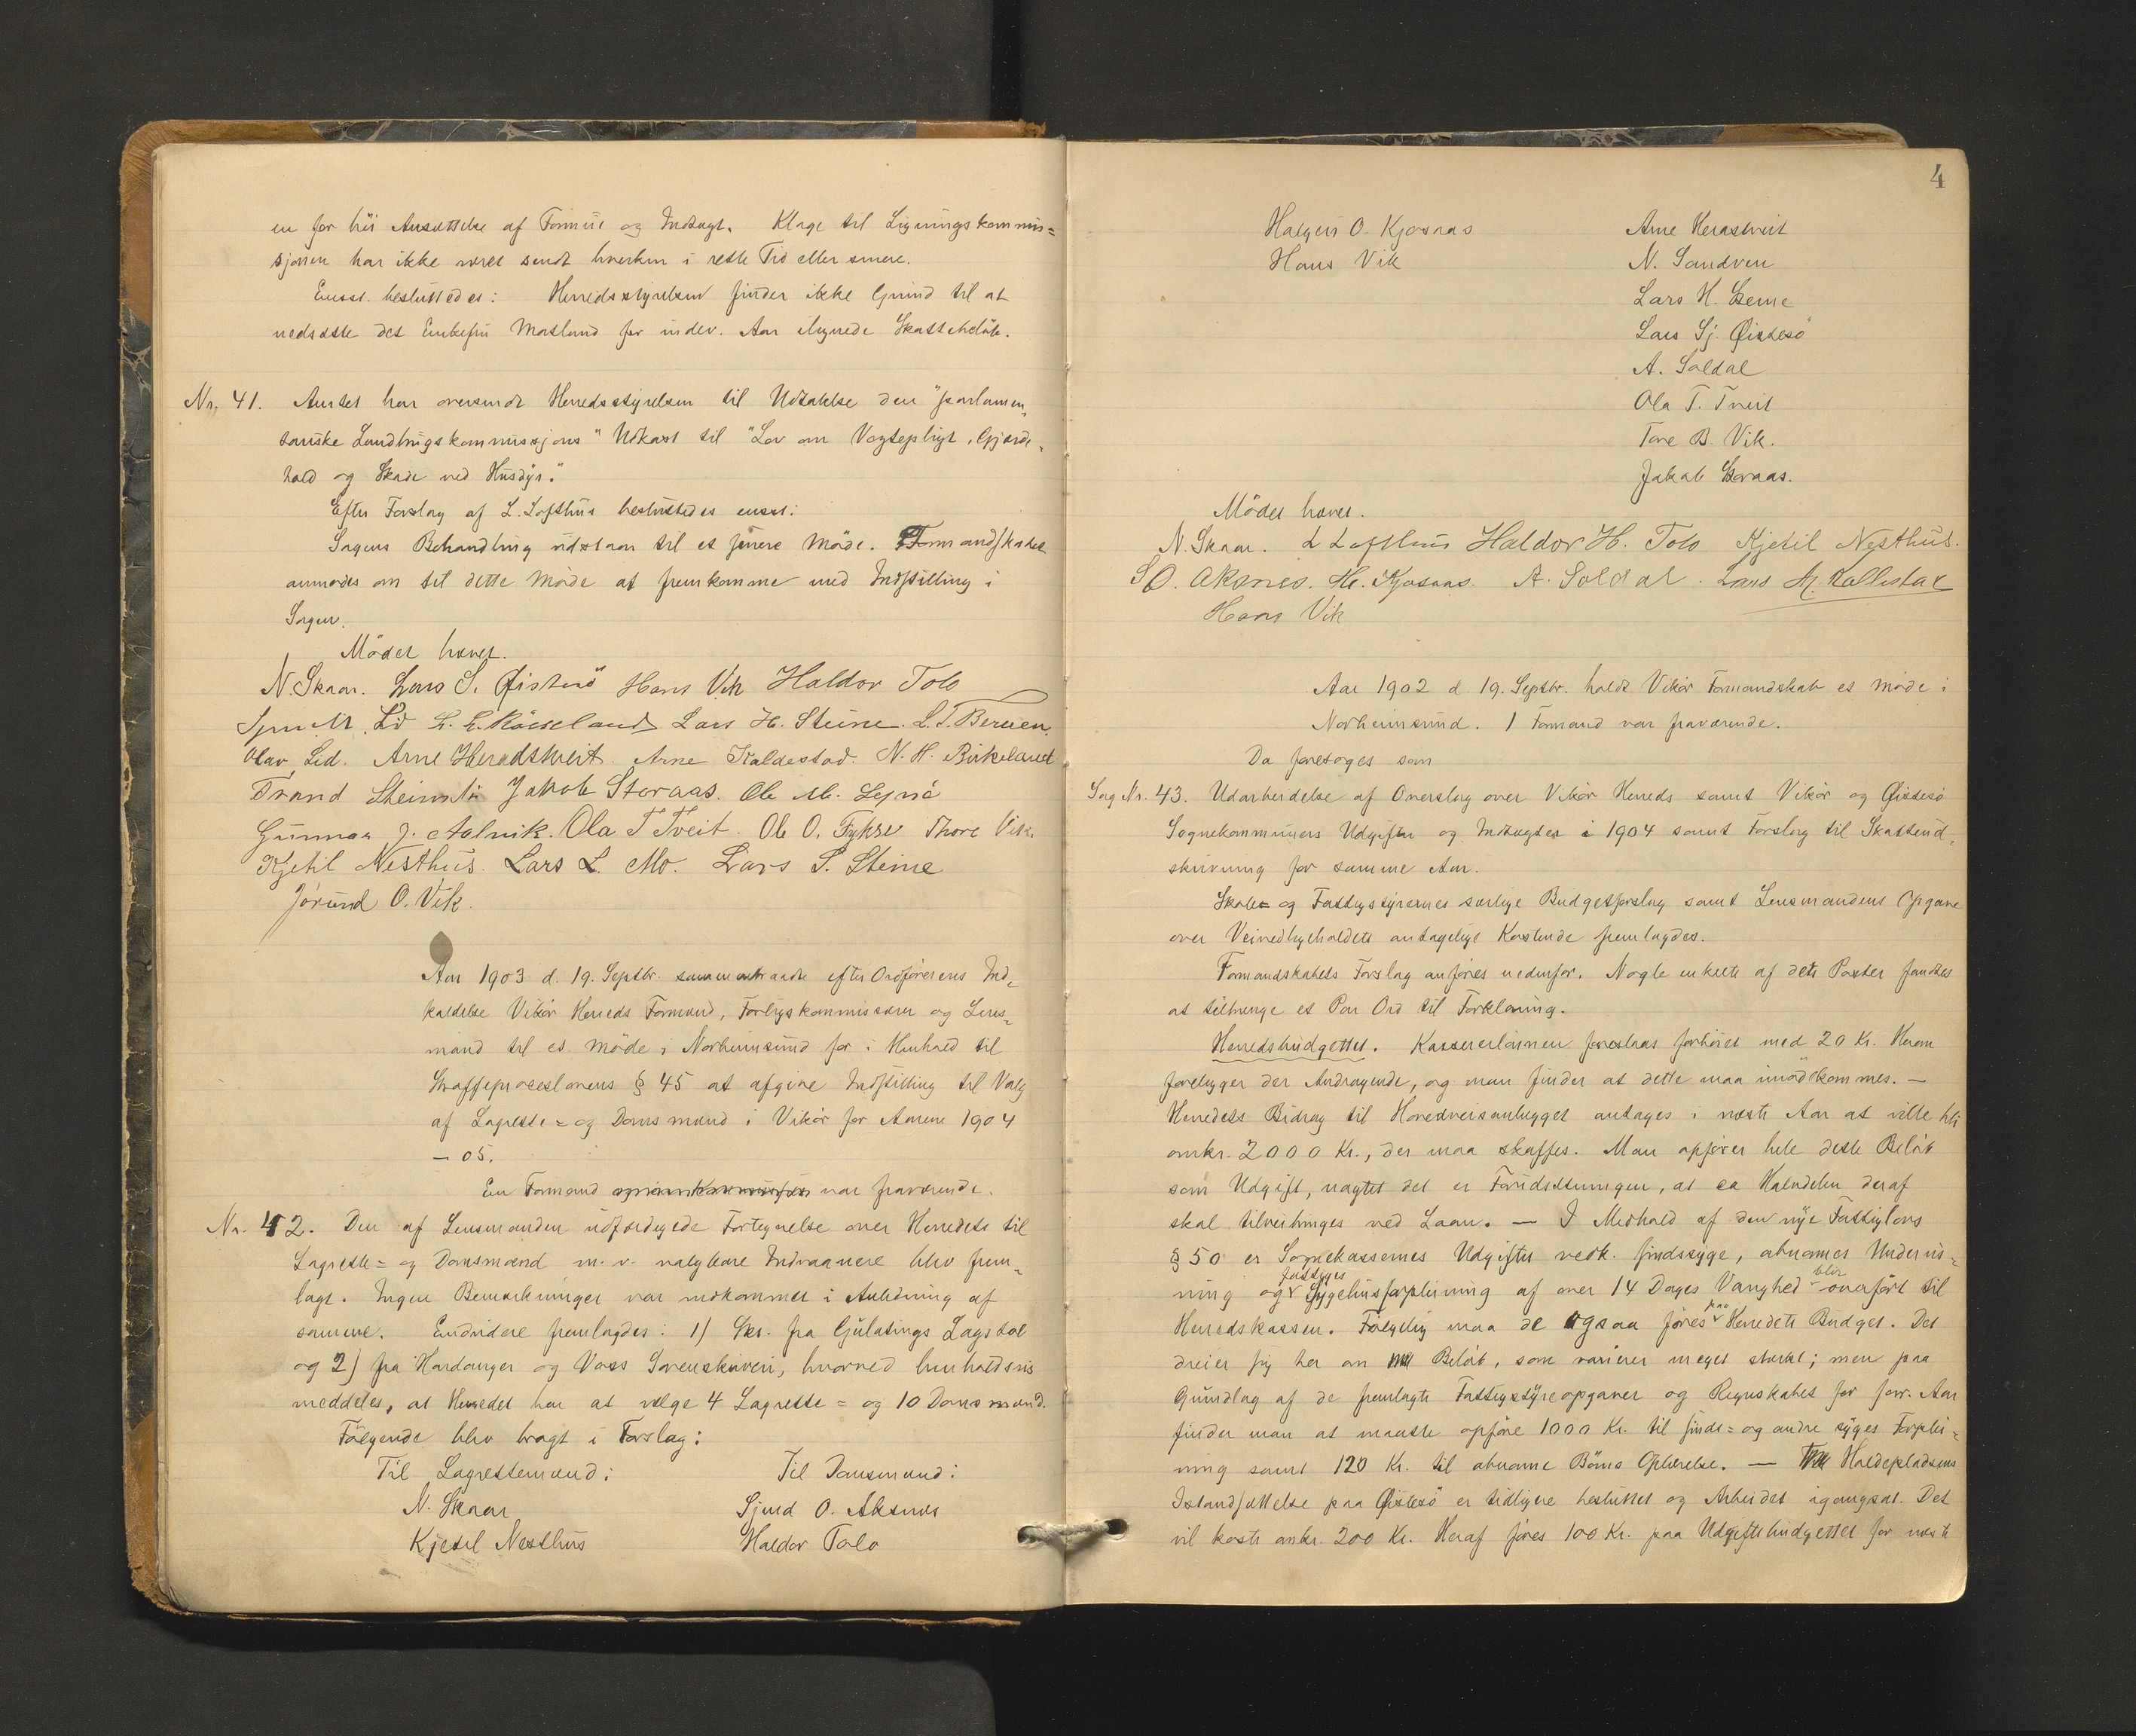 en for höi Ansættelse af Formue og Indtægt. Klage til Ligningskommis=
sjonen har ikke været sendt hverken i rette Tid eller senere.
Eenst. besluttedes: Herredsstyrelsen finder ikke Grund til at
nedsætte det Enkefru Matland for indev. Aar ilignede Skattebelöb.
Nr. 41. Amtet har oversendt Herredsstyrelsen til Udtalelse den "parlamen„
tariske Landbrugskommissjons" Udkast til "Lov om Vogtepligt, Gjærde„
hold og Skade ved Husdyr."
Efter Forslag af L. Lofthus besluttedes eenst:
Sagens Behandling udstaar til et senere Möde. Formandskabet
anmodes om til dette Möde at fremkomme med Indstilling i
Sagen.
Mödet hævet.
N. Skaar. Lars S. Øistesö Hans Vik Haldor Tolo
Lars H. Steine. L. T. Berven.
Arne Heradstveit Arne Kaldestad. N. H. Birkeland
Trand Steinstö Jakob Storaas.
Gunnar J. Aalvik. Ola T Tveit. Ole O. Fykse Thore Vik.
Kjetil Nesthus. Lars L. Mo. Lars S. Steine
Jörund O. Vik.
Aar 1903 d. 19. Septbr. sammentraadte efter Ordförerens Ind„
kaldelse Vikör Herreds Formænd, Forligskommissærer og Lens„
mand til et Möde i Norheimsund for i Henhold til
Straffeproceslovens § 45 at afgive Indstilling til Valg
af Lagrette= og Domsmænd i Vikör for Aarene 1904
– 05.
En Formand var fraværende.
Nr. 42. Den af Lensmanden udfærdigede Fortegnelse over Herredets til
Lagrette= og Domsmænd m. v. valgbare Indvaanere blev frem„
lagt. Ingen Bemærkninger var indkommet i Anledning af
samme. Endvidere fremlagdes: 1) Skr. fra Gulatings Lagstol
og 2) fra Hardanger og Voss Sorenskriveri, hvorved henholdsvis
meddeles, at Herredet har at vælge 4 Lagrette = og 10 Domsmænd.
Fölgende blev bragt i Forslag:
Til Lagrettemænd: Til Domsmænd:
N. Skaar Sjurd O. Aksnes
Kjetil Nesthus Haldor Tolo
4
Halgeir O. Kjosaas Arne Heradstveit
Hans Vik N. Sandven
Lars H. Steine
Lars Sj. Øistesö
A. Soldal
Ola T. Tveit
Tore B. Vik.
Jakob Storaas.
Mödet hævet.
N. Skaar. L Lofthus Haldor H. Tolo Kjetil Nesthus.
S O. Aksnes. H. Kjosaas. A. Soldal. Lars M. Kallestad
Hans Vik
Aar 1902 d. 19. Septbr. holdt Vikör Formandskab et Möde i
Norheimsund. 1 Formand var fraværende.
Da foretoges som
Sag Nr. 43. Udarbeidelse af Overslag over Vikör Herreds samt Vikör og Øistesö
Sognekommuners Udgifter og Indtægter i 1904 samt Forslag til Skatteud„
skrivning for samme Aar.
Skole= og Fattigstyrernes særlige Budgetforslag samt Lensmandens Opgave
over Veivedligeholdets antagelige Kostende fremlagdes.
Formandskabets Forslag anföres nedenfor. Nogle enkelte af dets Poster fandtes
at tiltrænge et Par Ord til Forklaring.
Herredsbudgettet. Kassererlönnen foreslaaes forhöiet med 20 Kr. Herom
foreligger der Andragende, og man finder at dette maa imödekommes. —
Herredets Bidrag til Hovedveisanlægget antages i næste Aar at ville bli
omkr. 2000 Kr., der maa skaffes. Man opförer hele dette Belöb
som Udgift, uagtet det er Forudsætningen, at ca Halvdelen deraf
skal tilveiebringes ved Laan. — I Medhold af den nye Fattiglovs
§ 50 er Sognekassernes Udgifter vedk. sindssyge, abnormes Undervis=
ning og fattiges Sygehusforpleining af over 14 Dages Varighed blir overfört til
Herredskassen. Fölgelig maa de ogsaa föres paa Herredets Budget. Det
dreier sig her om Belöb, som varierer meget sterkt; men paa
Grundlag af de fremlagte Fattigstyreopgaver og Regnskabet for forr. Aar
finder man at maatte opföre 1000 Kr. til sinds= og andre syges Forplei=
ning samt 120 Kr. til abnorme Börns Oplærelse. — Holdepladsens
Istandsættelse paa Øistesö er tidligere besluttet og Arbeidet igangsat. Det
vil koste omkr. 200 Kr. Heraf föres 100 Kr. paa Udgiftsbudgettet for næste